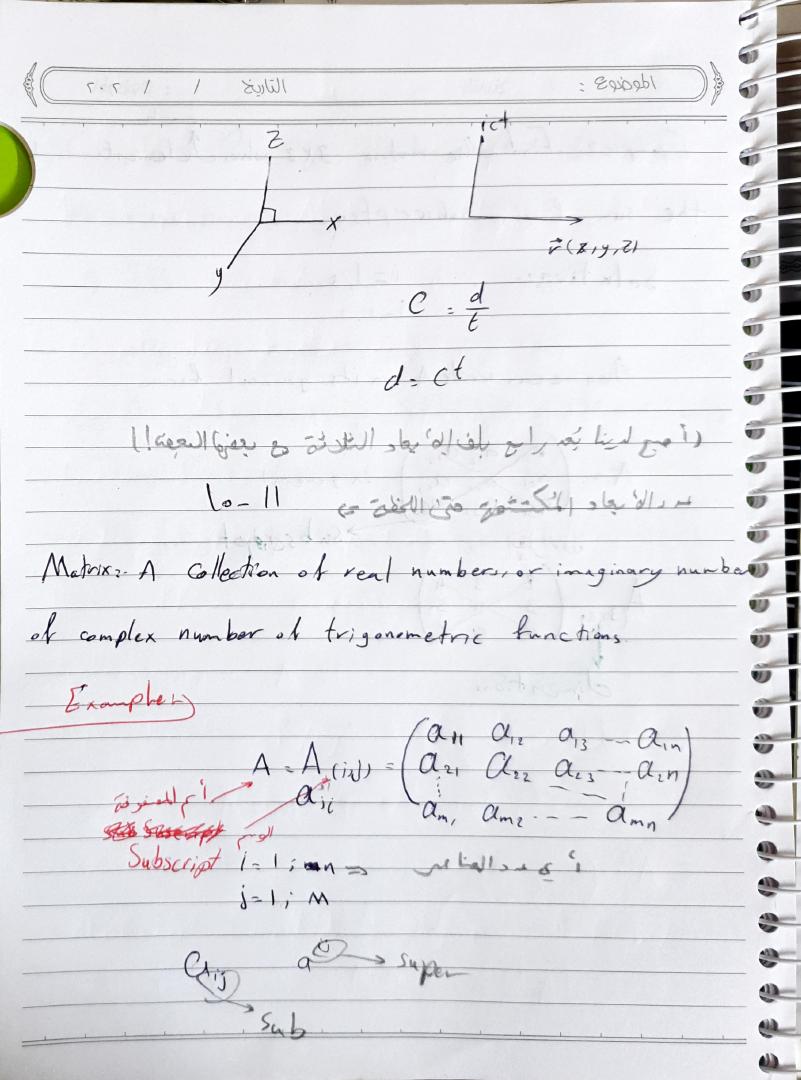 الموضوع : التاريخ / / ٢٠٢
z ict
x
y r⃗ (x, y, z)
C = d/t
d = ct
(أصبح لدينا بُعد رابع يلف الأبعاد الثلاثة مع بعضها البعض!!)
عدد الأبعاد المُكتشفة حتى اللحظة 10-11
Matrix:- A collection of real numbers, or imaginary number
of complex number of trigonometric functions.
Example:-
A = A(ij) = ( a11 a12 a13 --- a1n
a21 a22 a23 --- a2n
am1 am2 ---- amn )
aij
أسم المصفوفة
الوسم
Subscript i = 1 ; n => أي عدد العناصر
j = 1 ; M
aij → sub
a^ij → super